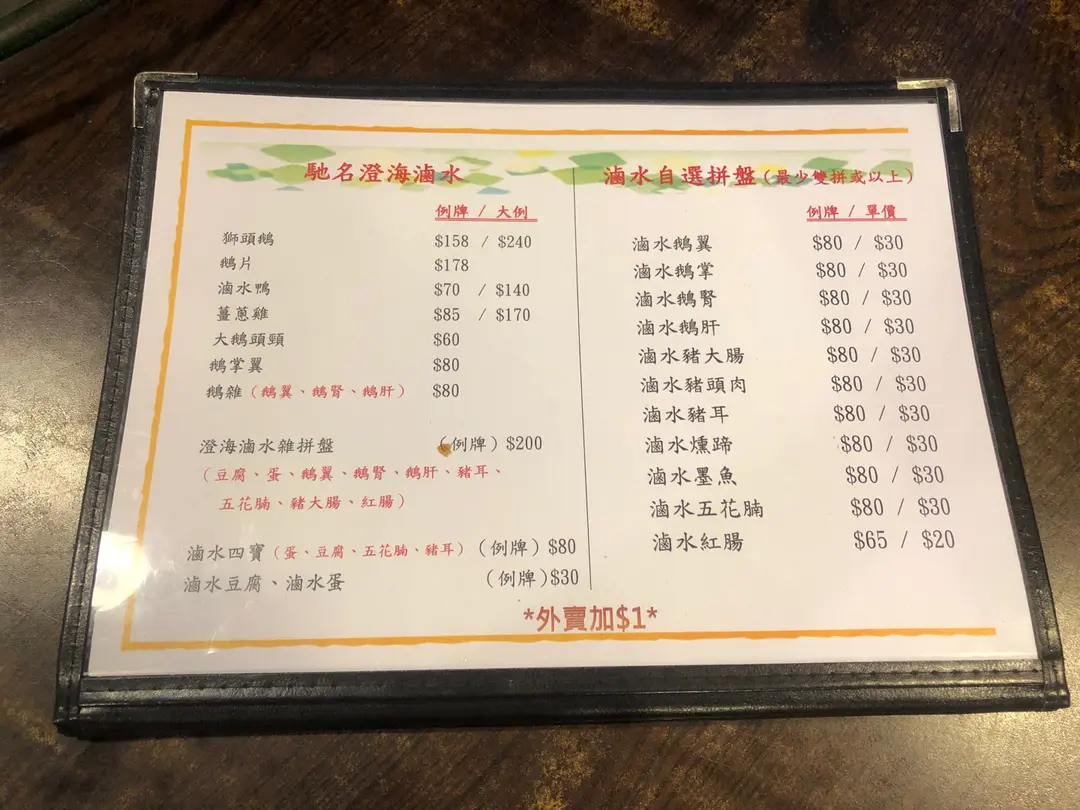 馳名澄海滷水
例牌 / 大例
獅頭鵝 $158 / $240
鵝片 $178
滷水鴨 $70 / $140
薑蔥雞 $85 / $170
大鵝頭頸 $60
鵝掌翼 $80
鵝雜（鵝翼、鵝腎、鵝肝） $80
澄海滷水雜拼盤 （例牌）$200
（豆腐、蛋、鵝翼、鵝腎、鵝肝、豬耳、
五花腩、豬大腸、紅腸）
滷水四寶（蛋、豆腐、五花腩、豬耳）（例牌）$80
滷水豆腐、滷水蛋 （例牌)$30
滷水自選拼盤（最少雙拼或以上）
例牌 / 單價
滷水鵝翼 $80 / $30
滷水鵝掌 $80 / $30
滷水鵝腎 $80 / $30
滷水鵝肝 $80 / $30
滷水豬大腸 $80 / $30
滷水豬頭肉 $80 / $30
滷水豬耳 $80 / $30
滷水燻蹄 $80 / $30
滷水墨魚 $80 / $30
滷水五花腩 $80 / $30
滷水紅腸 $65 / $20
*外賣加$1*